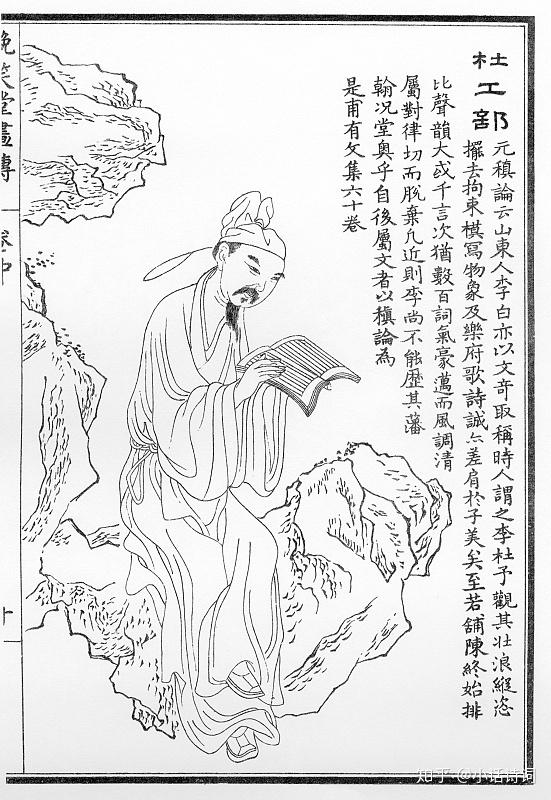 杜工部
元稹論云山東人李白亦以文奇取稱時人謂之李杜予觀其壯浪縱恣
擺去拘束模寫物象及樂府歌詩誠亦差肩於子美矣至若舖陳終始排
比聲韻大或千言次猶數百詞氣豪邁而風調清
屬對律切而脫棄凡近則李尚不能歷其藩
翰况堂奧乎自後屬文者以稹論為
是甫有文集六十卷
晚笑堂畫傳
卷中
十
知乎 @小话诗词